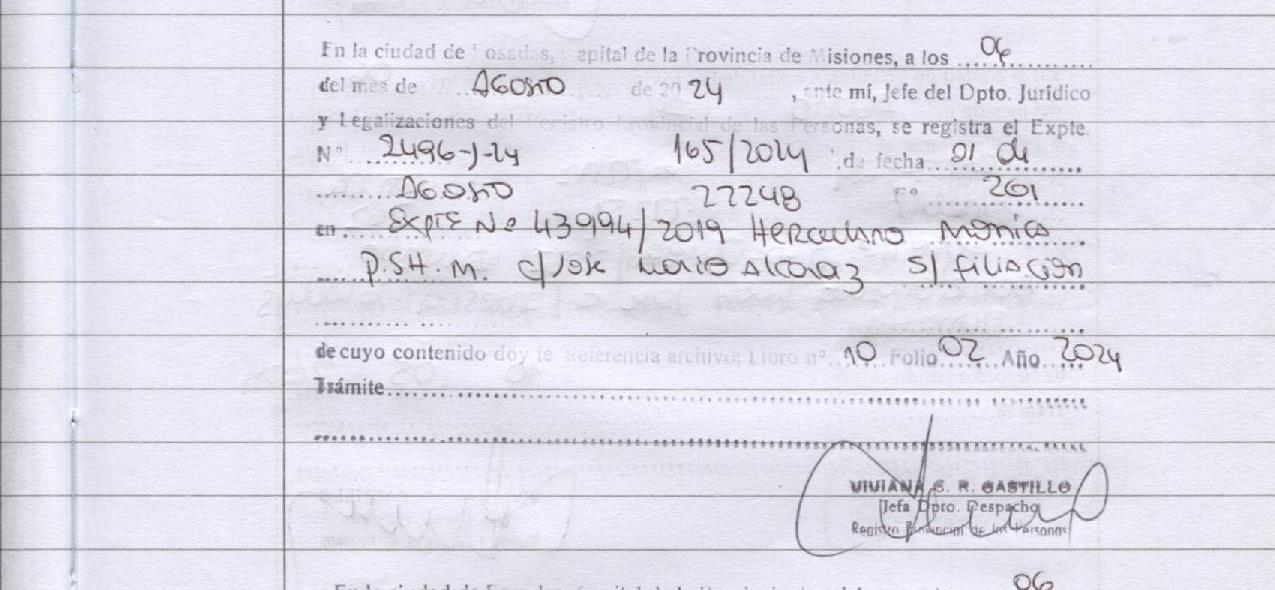 En la ciudad de Posadas, Capital de la Provincia de Misiones, a los 06
del mes de AGOSTO de 20 24, ante mí, Jefe del Dpto. Jurídico
y Legalizaciones del Registro Provincial de las Personas, se registra el Expte.
Nº 2496-J-24 165/2024 de fecha 01 de
AGOSTO 22248 Fº 201
en Expte Nº 439194/2019 Mónica
P.SH.M. c/José Mario Alcaraz S/ filiación
de cuyo contenido doy fe Referencia archivo; Libro nº 10 Folio 02 Año 2024
Trámite
VIVIANA S. R. CASTILLO
Jefa Dpto. Despacho
Registro Provincial de las Personas
06